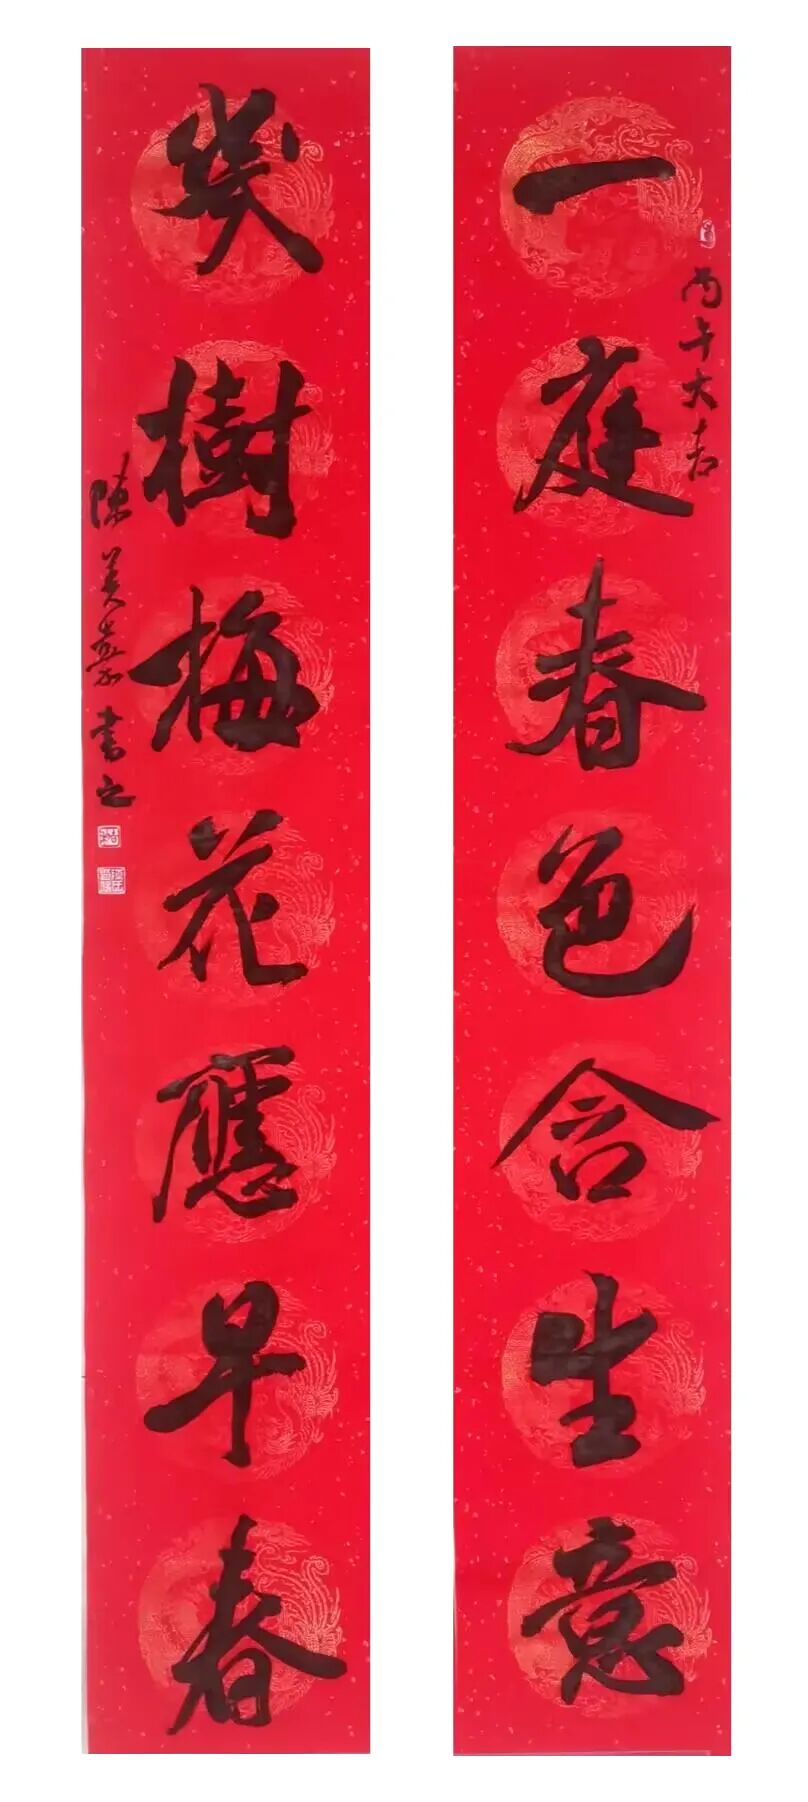 一庭春色含生意
丙午大吉
幾樹梅花應早春
陳美 書之